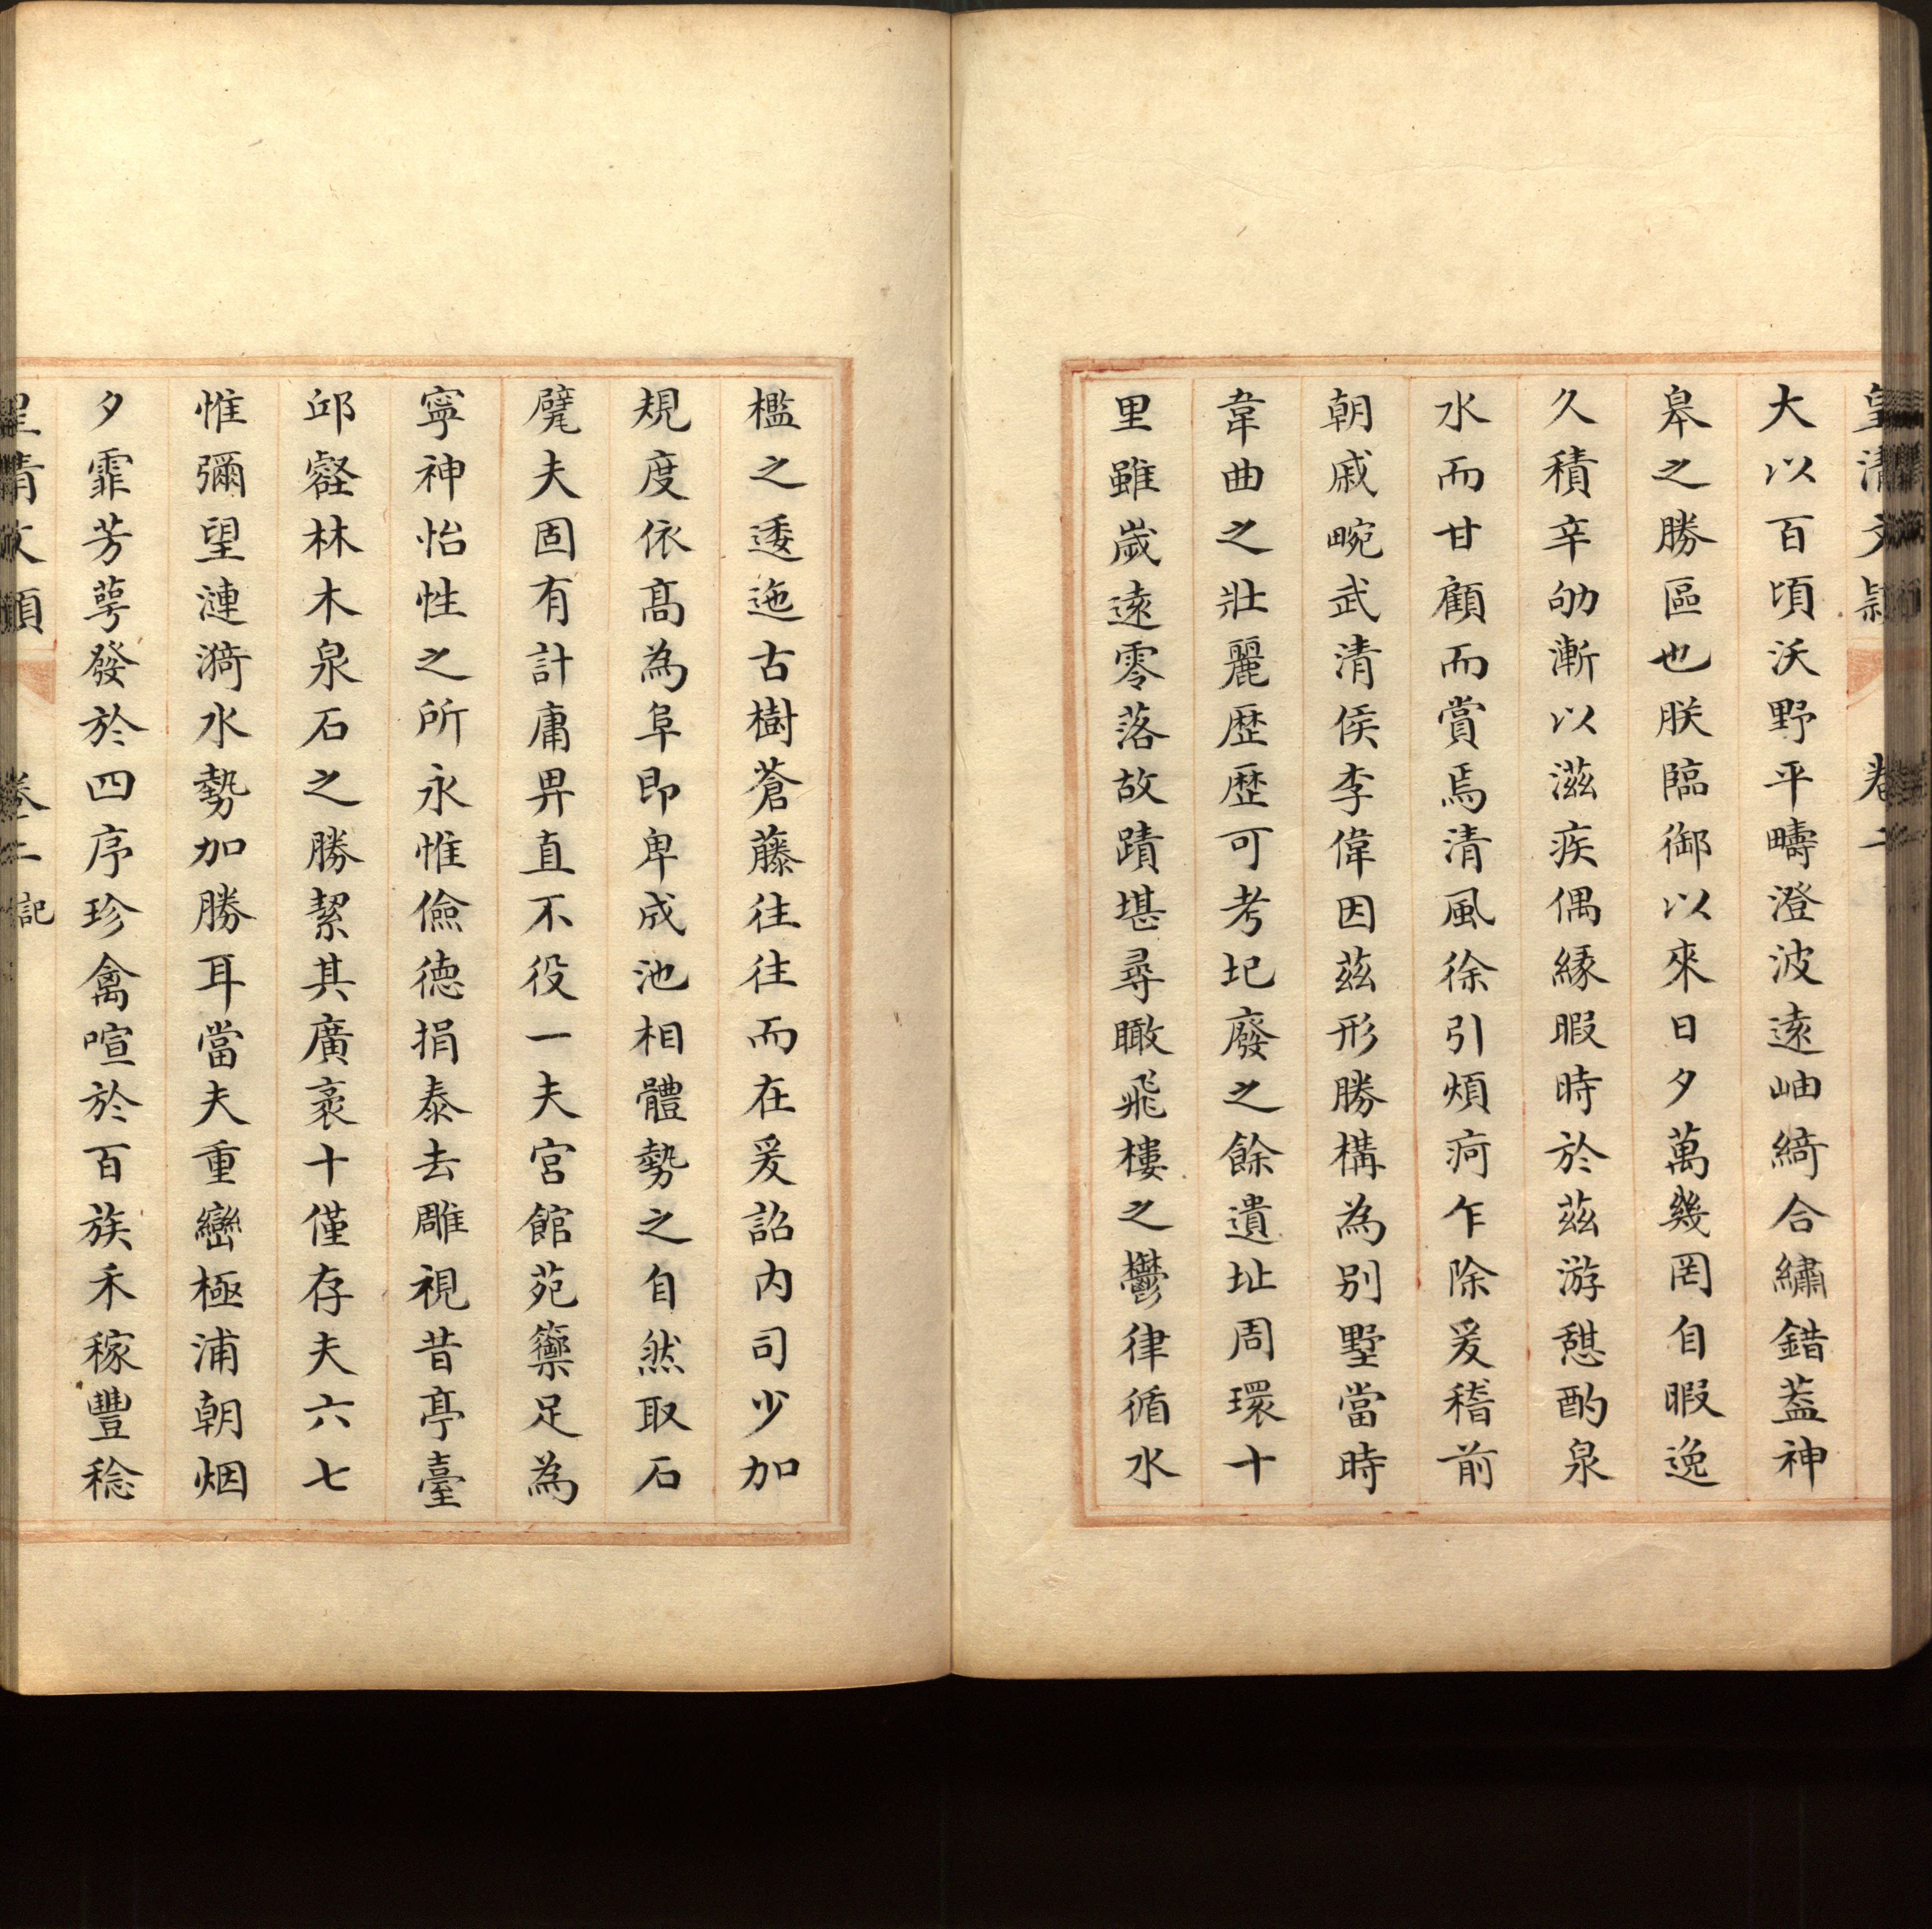 皇清文穎 卷二
大以百頃沃野平疇澄波遠岫綺合繡錯蓋神
皋之勝區也朕臨御以來日夕萬幾罔自暇逸
久積辛劬漸以滋疾偶緣暇時於茲游憩酌泉
水而甘顧而賞焉清風徐引煩疴乍除爰稽前
朝戚畹武清侯李偉因茲形勝構為別墅當時
韋曲之壯麗歷歷可考圮廢之餘遺址周環十
里雖歲遠零落故蹟堪尋瞰飛樓之鬱律循水
檻之逶迤古樹蒼藤往往而在爰詔内司少加
規度依高為阜即卑成池相體勢之自然取石
甓夫固有計庸畀直不役一夫宮館苑籞足為
寧神怡性之所永惟儉德捐泰去雕視昔亭臺
邱壑林木泉石之勝絜其廣袤十僅存夫六七
惟彌望漣漪水勢加勝耳當夫重巒極浦朝烟
夕霏芳萼發於四序珍禽喧於百族禾稼豐稔
皇清文穎 卷二 記